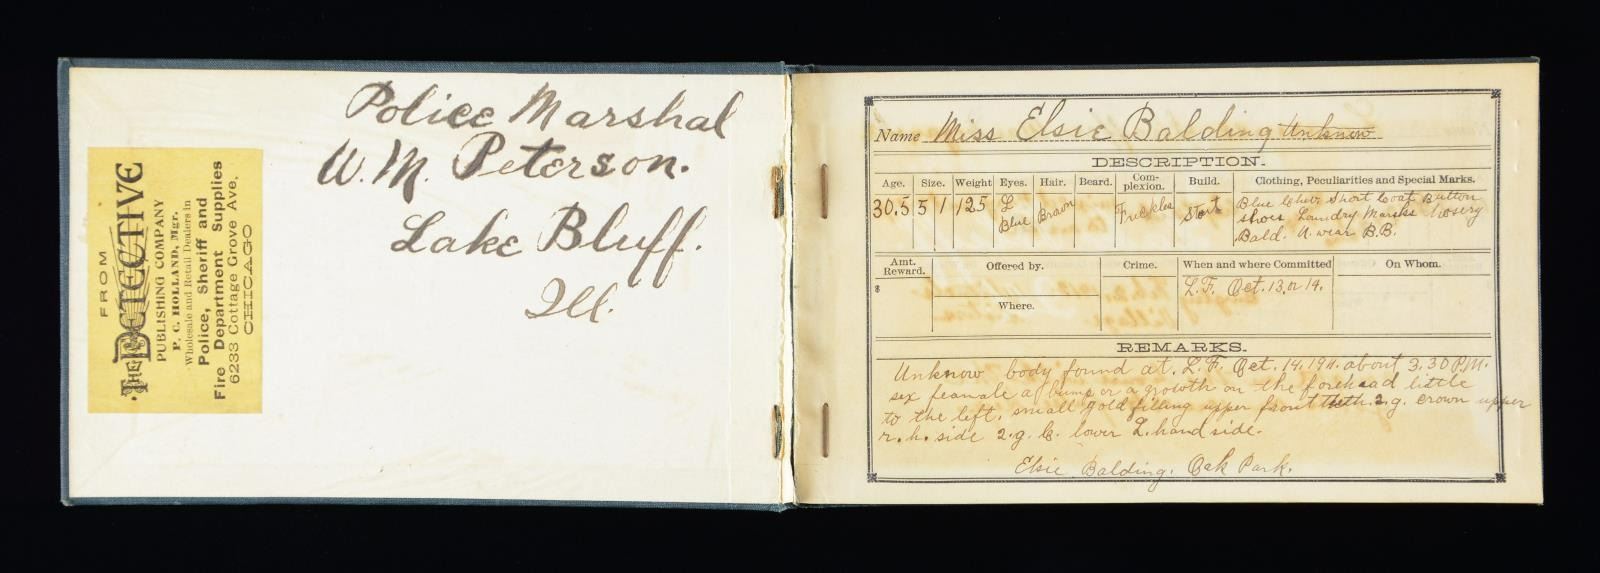 FROM
THE DETECTIVE
PUBLISHING COMPANY
P. C. HOLLAND, Mgr.
Wholesale and Retail Dealers in
Police, Sheriff and
Fire Department Supplies
6233 Cottage Grove Ave.
CHICAGO
Police Marshal
W. M. Peterson.
Lake Bluff.
Ill.
Name Miss Elsie Balding Unknow
DESCRIPTION.
Age. Size. Weight Eyes. Hair. Beard. Com-plexion. Build. Clothing, Peculiarities and Special Marks.
30.5 5 1 125 L Blue Brown Freckles Stout Blue Short Coat Button
shoes Laundry Marks hosery
Bald. U. wear B.B.
Amt. Reward. Offered by. Crime. When and where Committed On Whom.
$ L.F. Oct. 13. or 14.
Where.
REMARKS.
Unknow body found at L.F. Oct. 14, 191. about 3.30 P.M.
sex feamale a bump or a growth on the forehead little
to the left. small gold filling upper front teeth. 2. g. crown upper
r. h. side 2. g. c. lower L. hand side.
Elsie Balding. Oak Park.